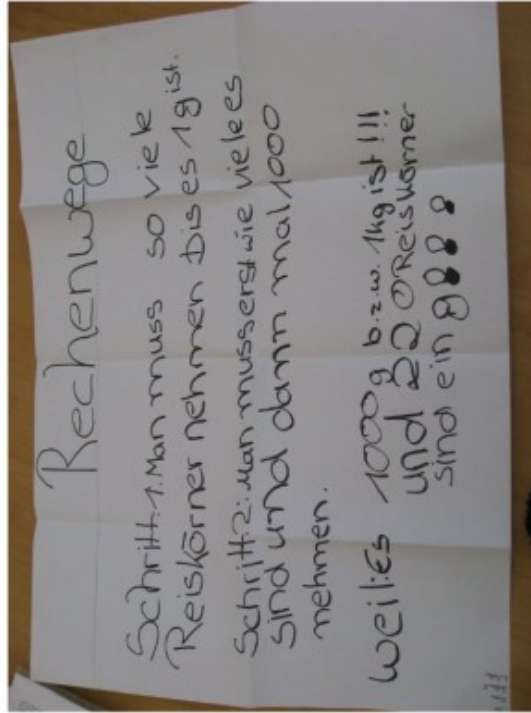 Rechenwege
Schritt:1. Man muss so viele
Reiskörner nehmen bis es 1g ist.
Schritt 2: Man muss erst wie viele es
sind und dann mal 1000
nehmen.
weil: Es 1000 g b.z.w. 1kg ist!!!
und 22 Reiskörner
sind ein g